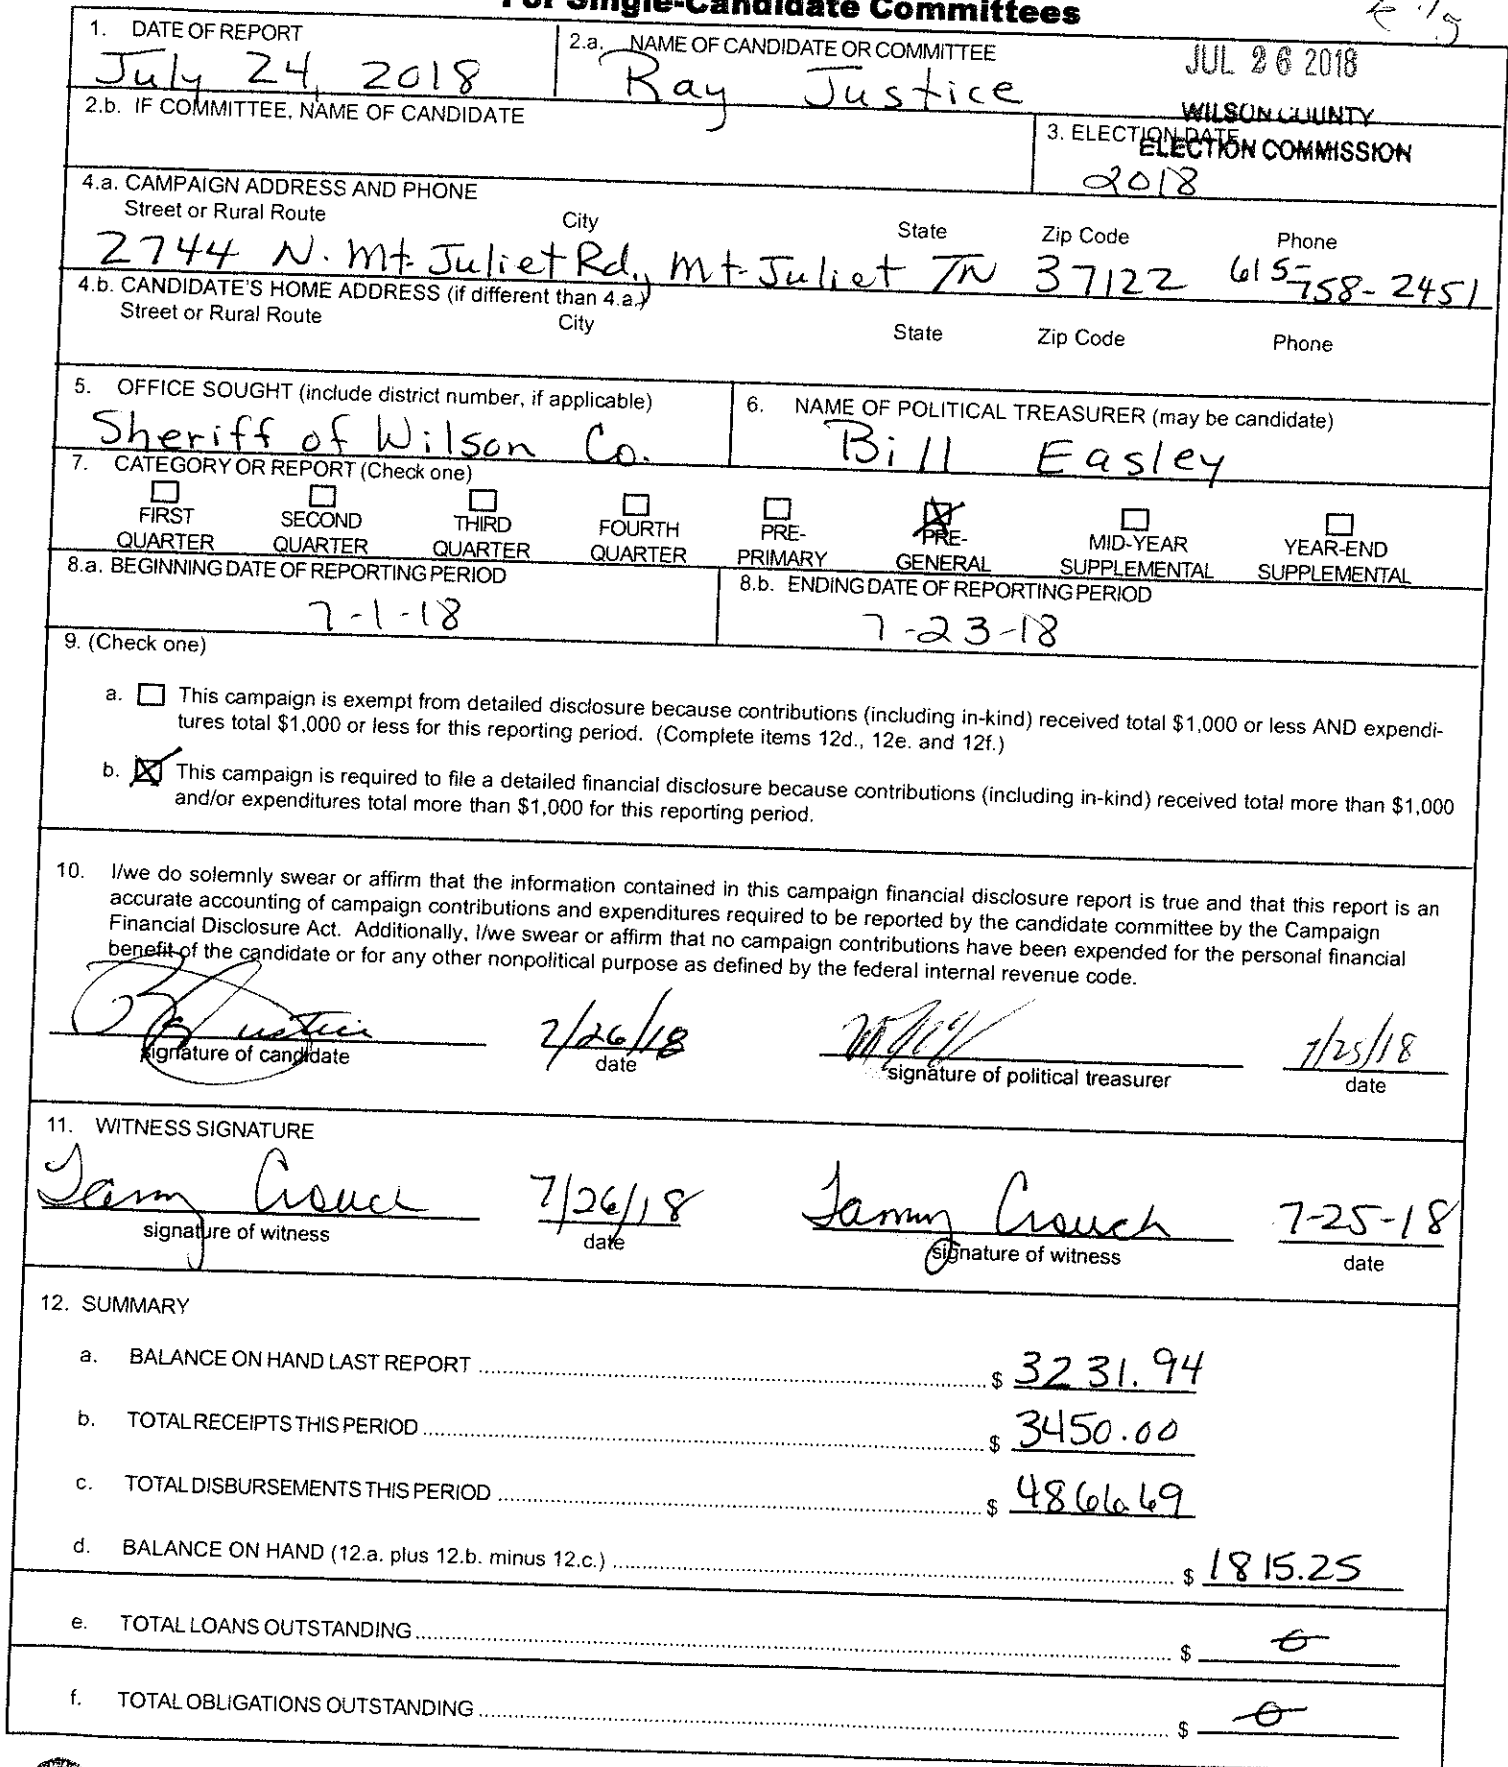 For Single-Candidate Committees
1. DATE OF REPORT
July 24, 2018
2.a. NAME OF CANDIDATE OR COMMITTEE
Ray Justice
JUL 26 2018
WILSON COUNTY
ELECTION COMMISSION
2.b. IF COMMITTEE, NAME OF CANDIDATE
3. ELECTION DATE
2018
4.a. CAMPAIGN ADDRESS AND PHONE
Street or Rural Route City State Zip Code Phone
2744 N. Mt. Juliet Rd., Mt. Juliet TN 37122 615-758-2451
4.b. CANDIDATE'S HOME ADDRESS (if different than 4.a.)
Street or Rural Route City State Zip Code Phone
5. OFFICE SOUGHT (include district number, if applicable)
Sheriff of Wilson Co.
6. NAME OF POLITICAL TREASURER (may be candidate)
Bill Easley
7. CATEGORY OR REPORT (Check one)
FIRST QUARTER
SECOND QUARTER
THIRD QUARTER
FOURTH QUARTER
PRE-PRIMARY
PRE-GENERAL
MID-YEAR SUPPLEMENTAL
YEAR-END SUPPLEMENTAL
8.a. BEGINNING DATE OF REPORTING PERIOD
7-1-18
8.b. ENDING DATE OF REPORTING PERIOD
7-23-18
9. (Check one)
a. This campaign is exempt from detailed disclosure because contributions (including in-kind) received total $1,000 or less AND expendi-
tures total $1,000 or less for this reporting period. (Complete items 12d., 12e. and 12f.)
b. This campaign is required to file a detailed financial disclosure because contributions (including in-kind) received total more than $1,000
and/or expenditures total more than $1,000 for this reporting period.
10. I/we do solemnly swear or affirm that the information contained in this campaign financial disclosure report is true and that this report is an
accurate accounting of campaign contributions and expenditures required to be reported by the candidate committee by the Campaign
Financial Disclosure Act. Additionally, I/we swear or affirm that no campaign contributions have been expended for the personal financial
benefit of the candidate or for any other nonpolitical purpose as defined by the federal internal revenue code.
Justice 7/26/18 7/25/18
signature of candidate date signature of political treasurer date
11. WITNESS SIGNATURE
Tammy Crouch 7/26/18 Tammy Crouch 7-25-18
signature of witness date signature of witness date
12. SUMMARY
a. BALANCE ON HAND LAST REPORT $ 3231.94
b. TOTAL RECEIPTS THIS PERIOD $ 3450.00
c. TOTAL DISBURSEMENTS THIS PERIOD $ 4866.69
d. BALANCE ON HAND (12.a. plus 12.b. minus 12.c.) $ 1815.25
e. TOTAL LOANS OUTSTANDING $ 0
f. TOTAL OBLIGATIONS OUTSTANDING $ 0